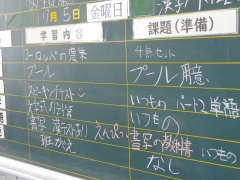 7月5日 金曜日
学習内容 課題(準備)
ヨーロッパの農業 4点セット
プール プール臆
スピーキングテスト いつもの パート2 単語
文字式の計算 いつもの
書写 漢テスト えんぴつ 書写の教科書 いつもの
なし